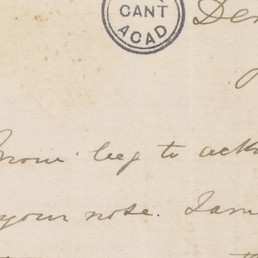 CANT
ACAD
Dea
now beg to ack
your note. I am